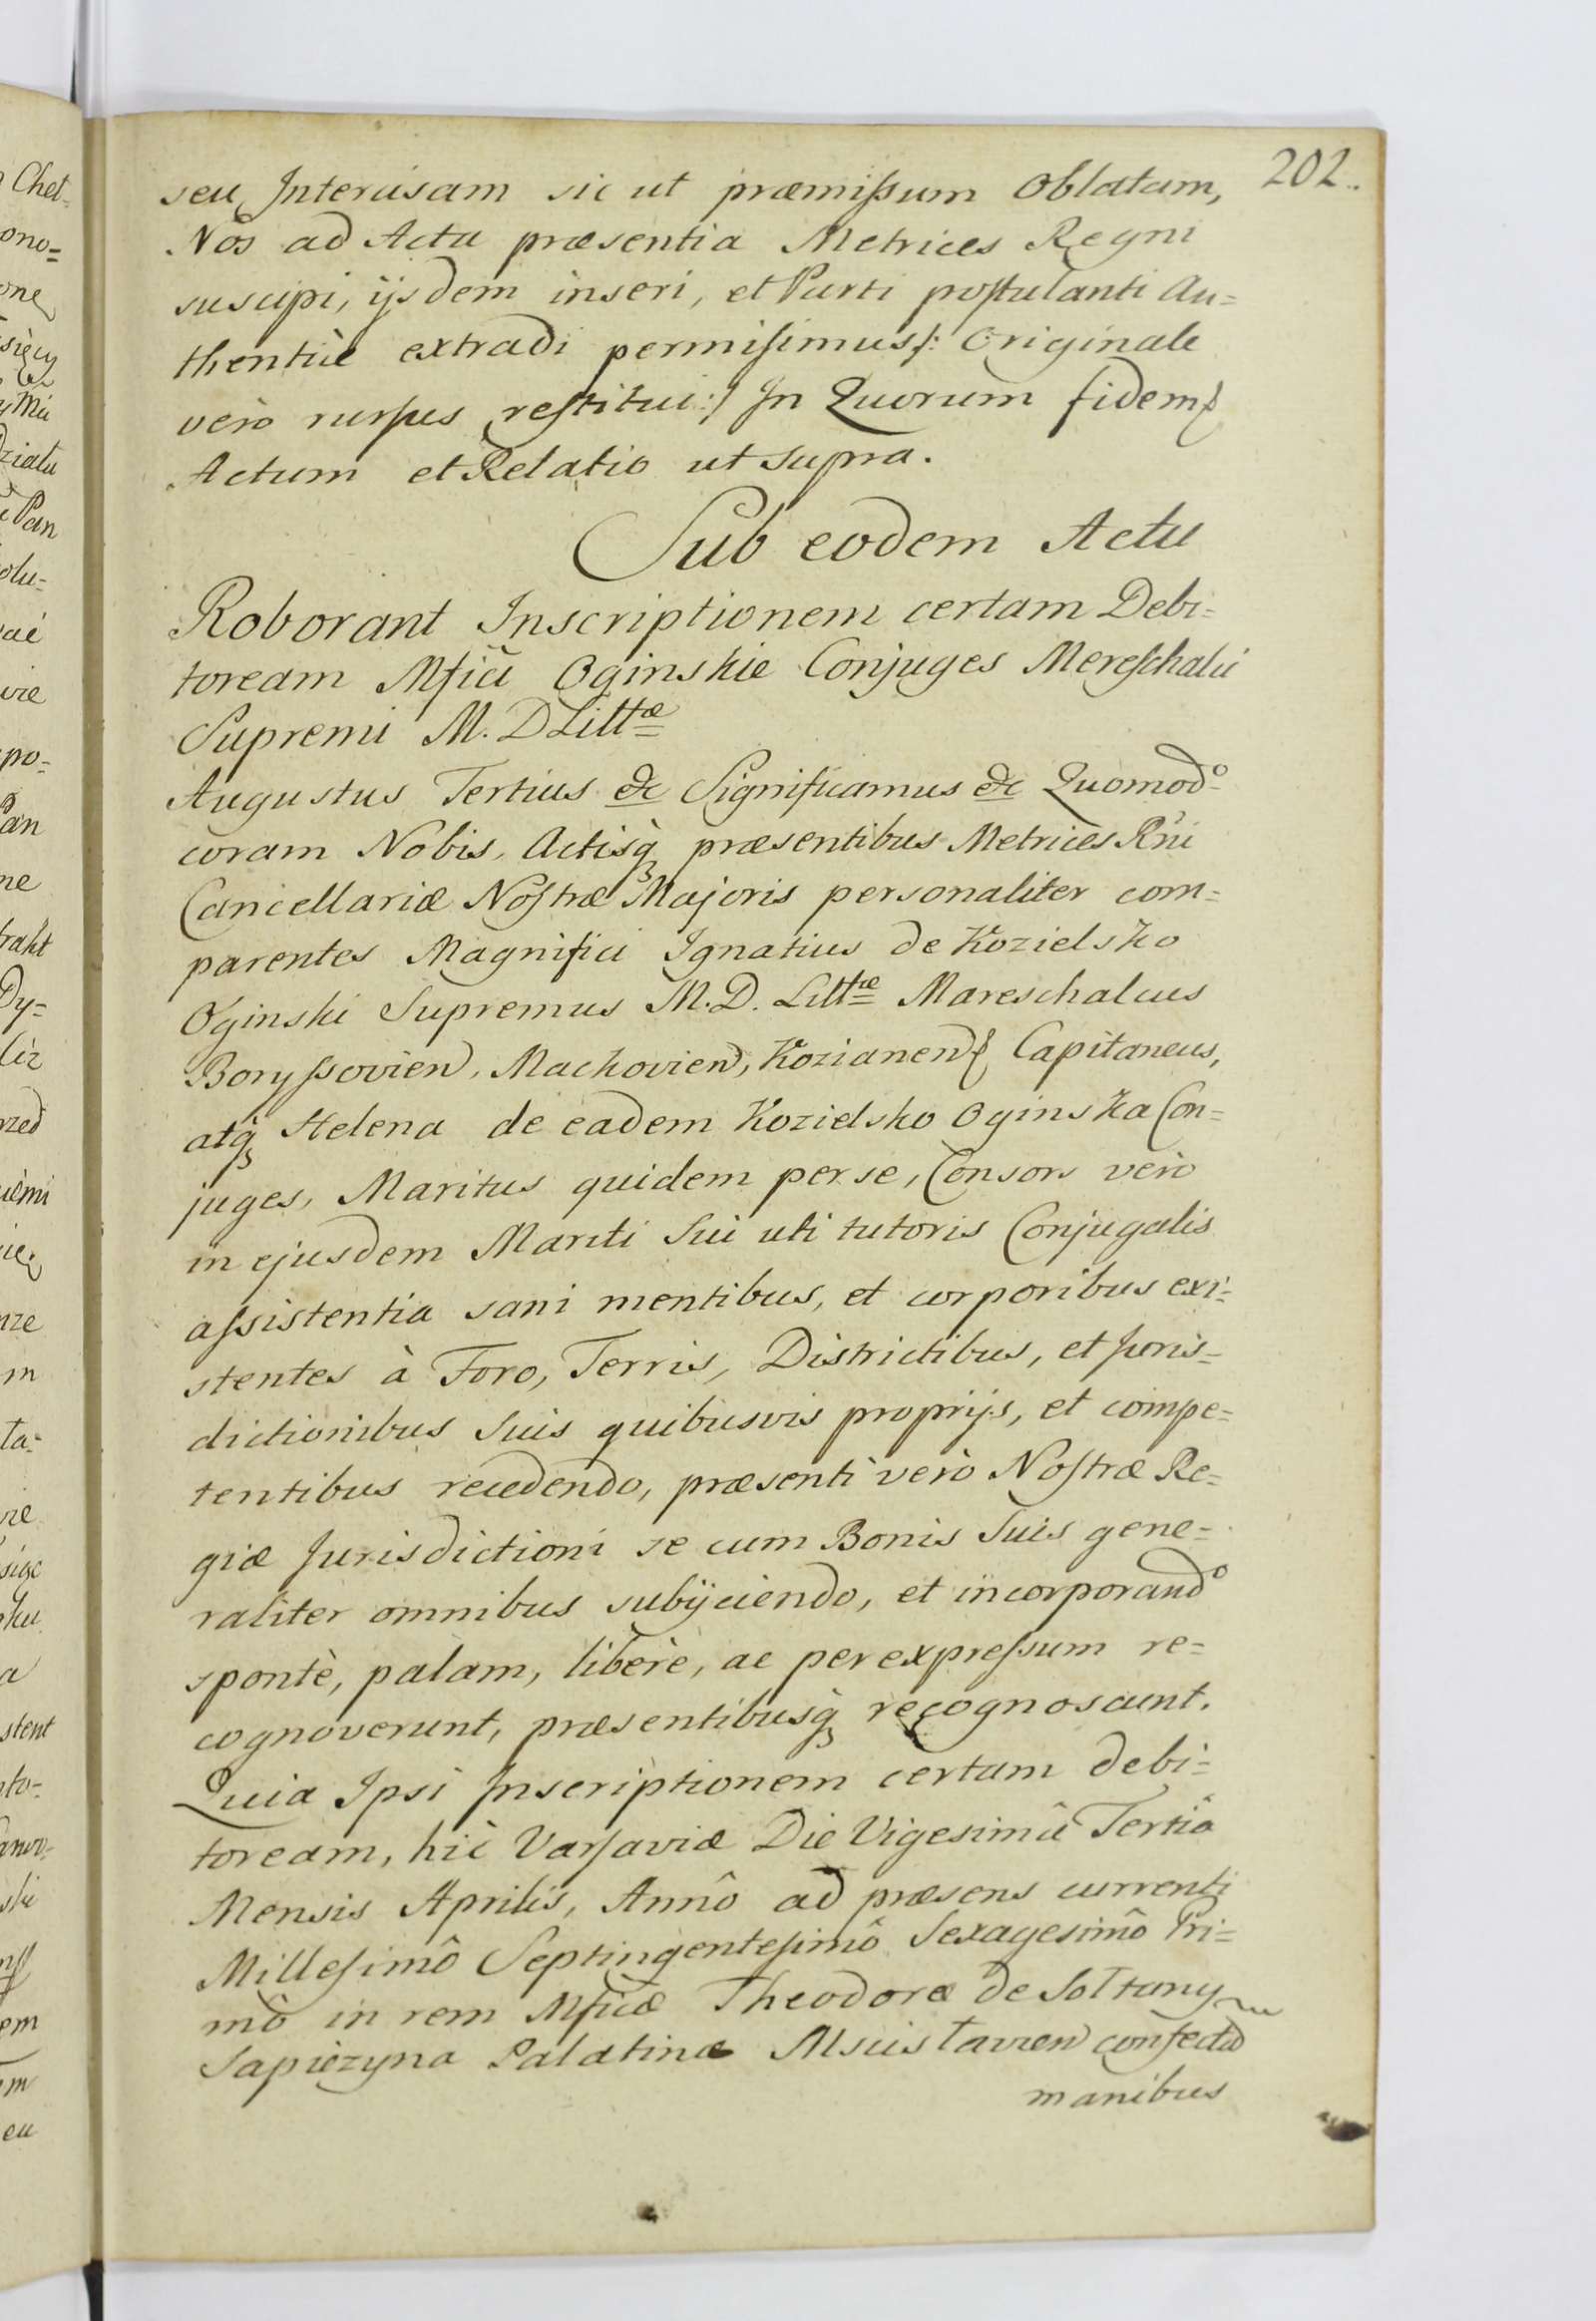 202.
seu Intercisam sic ut præmiſsum Oblatam,
Nos ad Acta præsentia Metrices Regni
suscipi, ijsdem inseri, et Parti poſtulanti Au=
thenticè extradi permiſimus /: Originale
verò rurſus reſtitui :/ In Quorum fidem
Actum et Relatio ut supra.
Sub eodem Actu
Roborant Inscriptionem certam Debi=
toream Mfici Oginskie Conjuges Mereſchalci
Supremi M. D Littæ
Augustus Tertius &c Significamus &c Quomodo
coram Nobis, Actisq præsentibus Metrices Rni
Cancellariæ Noſtræ Majoris personaliter com=
parentes Magnifici Ignatius de Kozielsko
Oginski Supremus M. D. Littæ Mareschalcus
Boryſsovien, Machovien, Kozianen Capitaneus,
atq Helena de eadem Kozielsko Oginska Con=
juges, Maritus quidem per se, Consors verò
in ejusdem Mariti Sui uti tutoris Conjugalis
aſsistentia sani mentibus, et corporibus exi=
stentes à Foro, Terris, Districtibus, et Juris=
dictionibus Suis quibusvis proprijs, et compe=
tentibus recedendo, præsenti verò Noſtræ Re=
giæ Jurisdictioni se cum Bonis Suis gene=
raliter omnibus subijciendo, et incorporando
spontè, palam, liberè, ac per expreſsum re=
cognoverunt, præsentibusq recognoscunt.
Quia Ipsi Inscriptionem certam debi=
toream, hic Varſaviæ Die Vigesimâ Tertiâ
Mensis Aprilis, Annô ad præsens currenti
Milleſimô Septingenteſimô Sexagesimô Pri=
mô in rem Mficæ Theodoræ de Soltany
Sapiezyna Palatinæ Mscislavien confectã
manibus